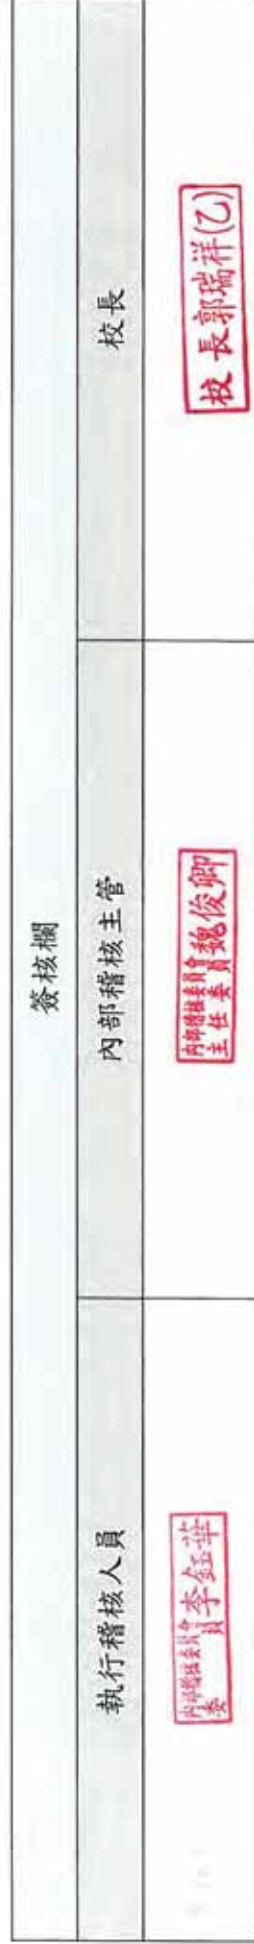 簽核欄
執行稽核人員
內部稽核主管
校長
內部稽核委員會
委員李鈺華
內部稽核委員會
主任委員魏俊卿
校長郭瑞祥(乙)